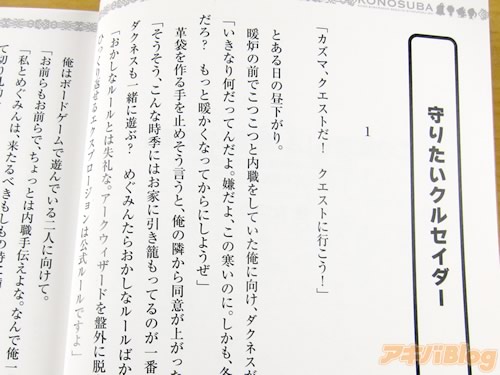 KONOSUBA
守りたいクルセイダー
1
「カズマ、クエストだ! クエストに行こう!」
とある日の昼下がり。
暖炉の前でこつこつと内職をしていた俺に向け、ダクネスが
「いきなり何だってんだよ。嫌だよ、この寒いのに。しかも、冬
だろ? もっと暖かくなってからにしようぜ」
革袋を作る手を止めそう言うと、俺の隣から同意が上がった
「そうそう、こんな時季にはお家に引き籠もってるのが一番
ダクネスも一緒に遊ぶ? めぐみんたらおかしなルールばか
「おかしなルールとは失礼な。アークウィザードを盤外に脱
ひっくり返せるエクスプロージョンは公式ルールですよ」
俺はボードゲームで遊んでいる二人に向けて。
「お前らもお前らで、ちょっとは内職手伝えよな。なんで俺一
「私とめぐみんは、来たるべきもしもの時に
アキバBlog